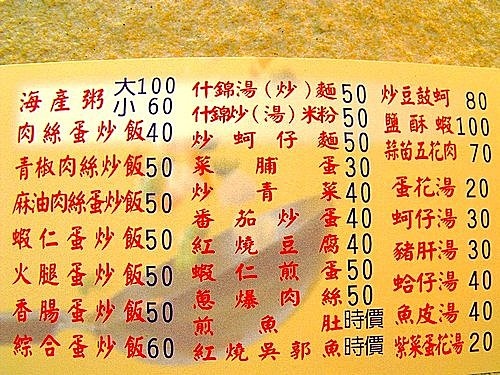 海產粥 大100 小60
肉絲蛋炒飯40
青椒肉絲炒飯50
麻油肉絲蛋炒飯50
蝦仁蛋炒飯50
火腿蛋炒飯50
香腸蛋炒飯50
綜合蛋炒飯60
什錦湯(炒)麵50
什錦炒(湯)米粉50
炒蚵仔麵50
菜脯蛋30
炒青菜40
番茄炒蛋40
紅燒豆腐40
蝦仁煎蛋50
蔥爆肉絲50
煎魚肚時價
紅燒吳郭魚時價
炒豆豉蚵 80
鹽酥蝦100
蒜苗五花肉 70
蛋花湯20
蚵仔湯30
豬肝湯30
蛤仔湯40
魚皮湯40
紫菜蛋花湯20